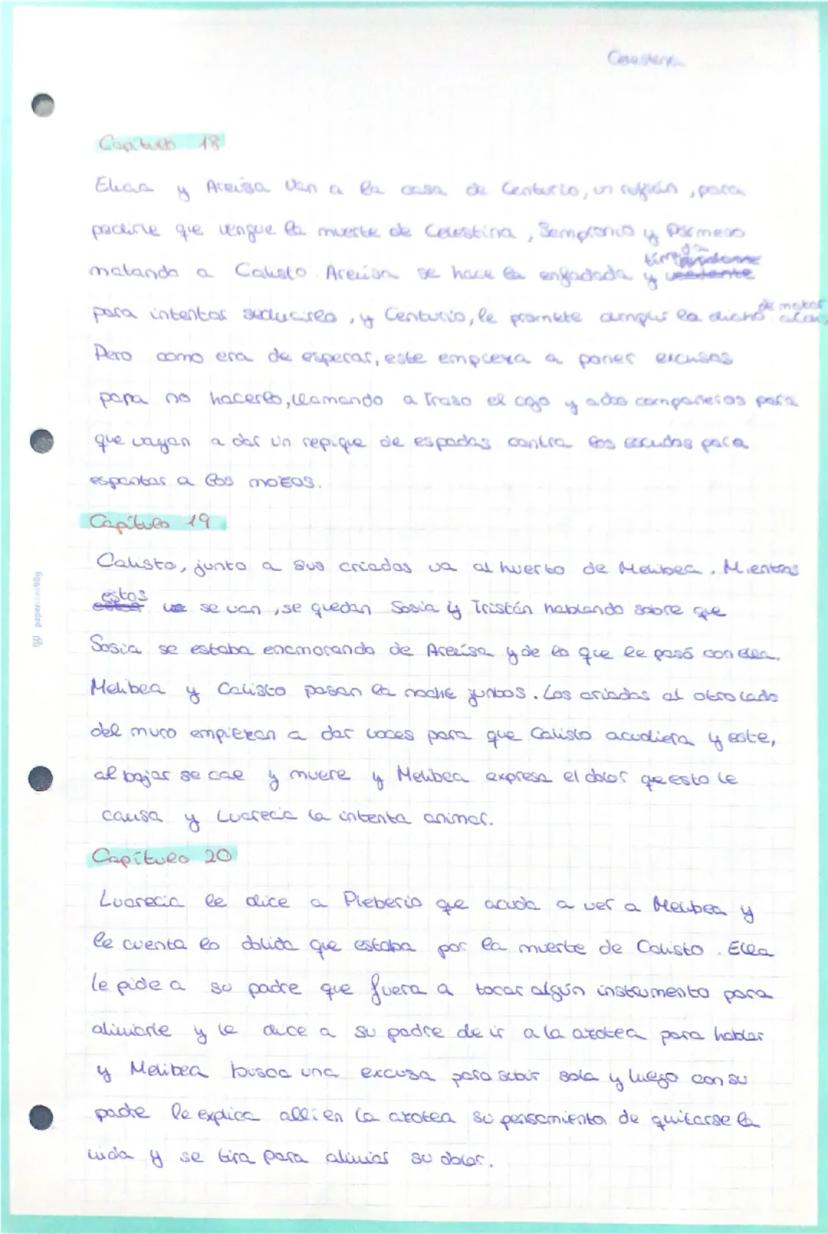 Celestina
Capítulo 18
Elicia y Areúsa van a la casa de Centurio, un rufián, para
pedirle que vengue la muerte de Celestina, Sempronio y Pármeno
matando a Calisto. Areúsa se hace la enfadada y
para intentar seducirlo, y Centurio, le promete cumplir lo dicho de matar
Pero como era de esperar, este empieza a poner excusas
para no hacerlo, llamando a Traso el cojo y a dos compañeros para
que vayan a dar un repique de espadas contra los escudos para
espantar a los mozos.
Capítulo 19
Calisto, junto a sus criados va al huerto de Melibea. Mientras
estos se van, se quedan Sosia y Tristán hablando sobre que
Sosia se estaba enamorando de Areúsa y de lo que le pasó con ella.
Melibea y Calisto pasan la noche juntos. Los criados al otro lado
del muro empiezan a dar voces para que Calisto acudiera y este,
al bajar se cae y muere y Melibea expresa el dolor que esto le
causa y Lucrecia la intenta animar.
Capítulo 20
Lucrecia le dice a Pleberio que acuda a ver a Melibea y
le cuenta lo dolida que estaba por la muerte de Calisto. Ella
le pide a su padre que fuera a tocar algún instrumento para
aliviarle y le dice a su padre de ir a la azotea para hablar
y Melibea busca una excusa para subir sola y luego con su
padre le explica allí en la azotea su pensamiento de quitarse la
vida y se tira para aliviar su dolor.